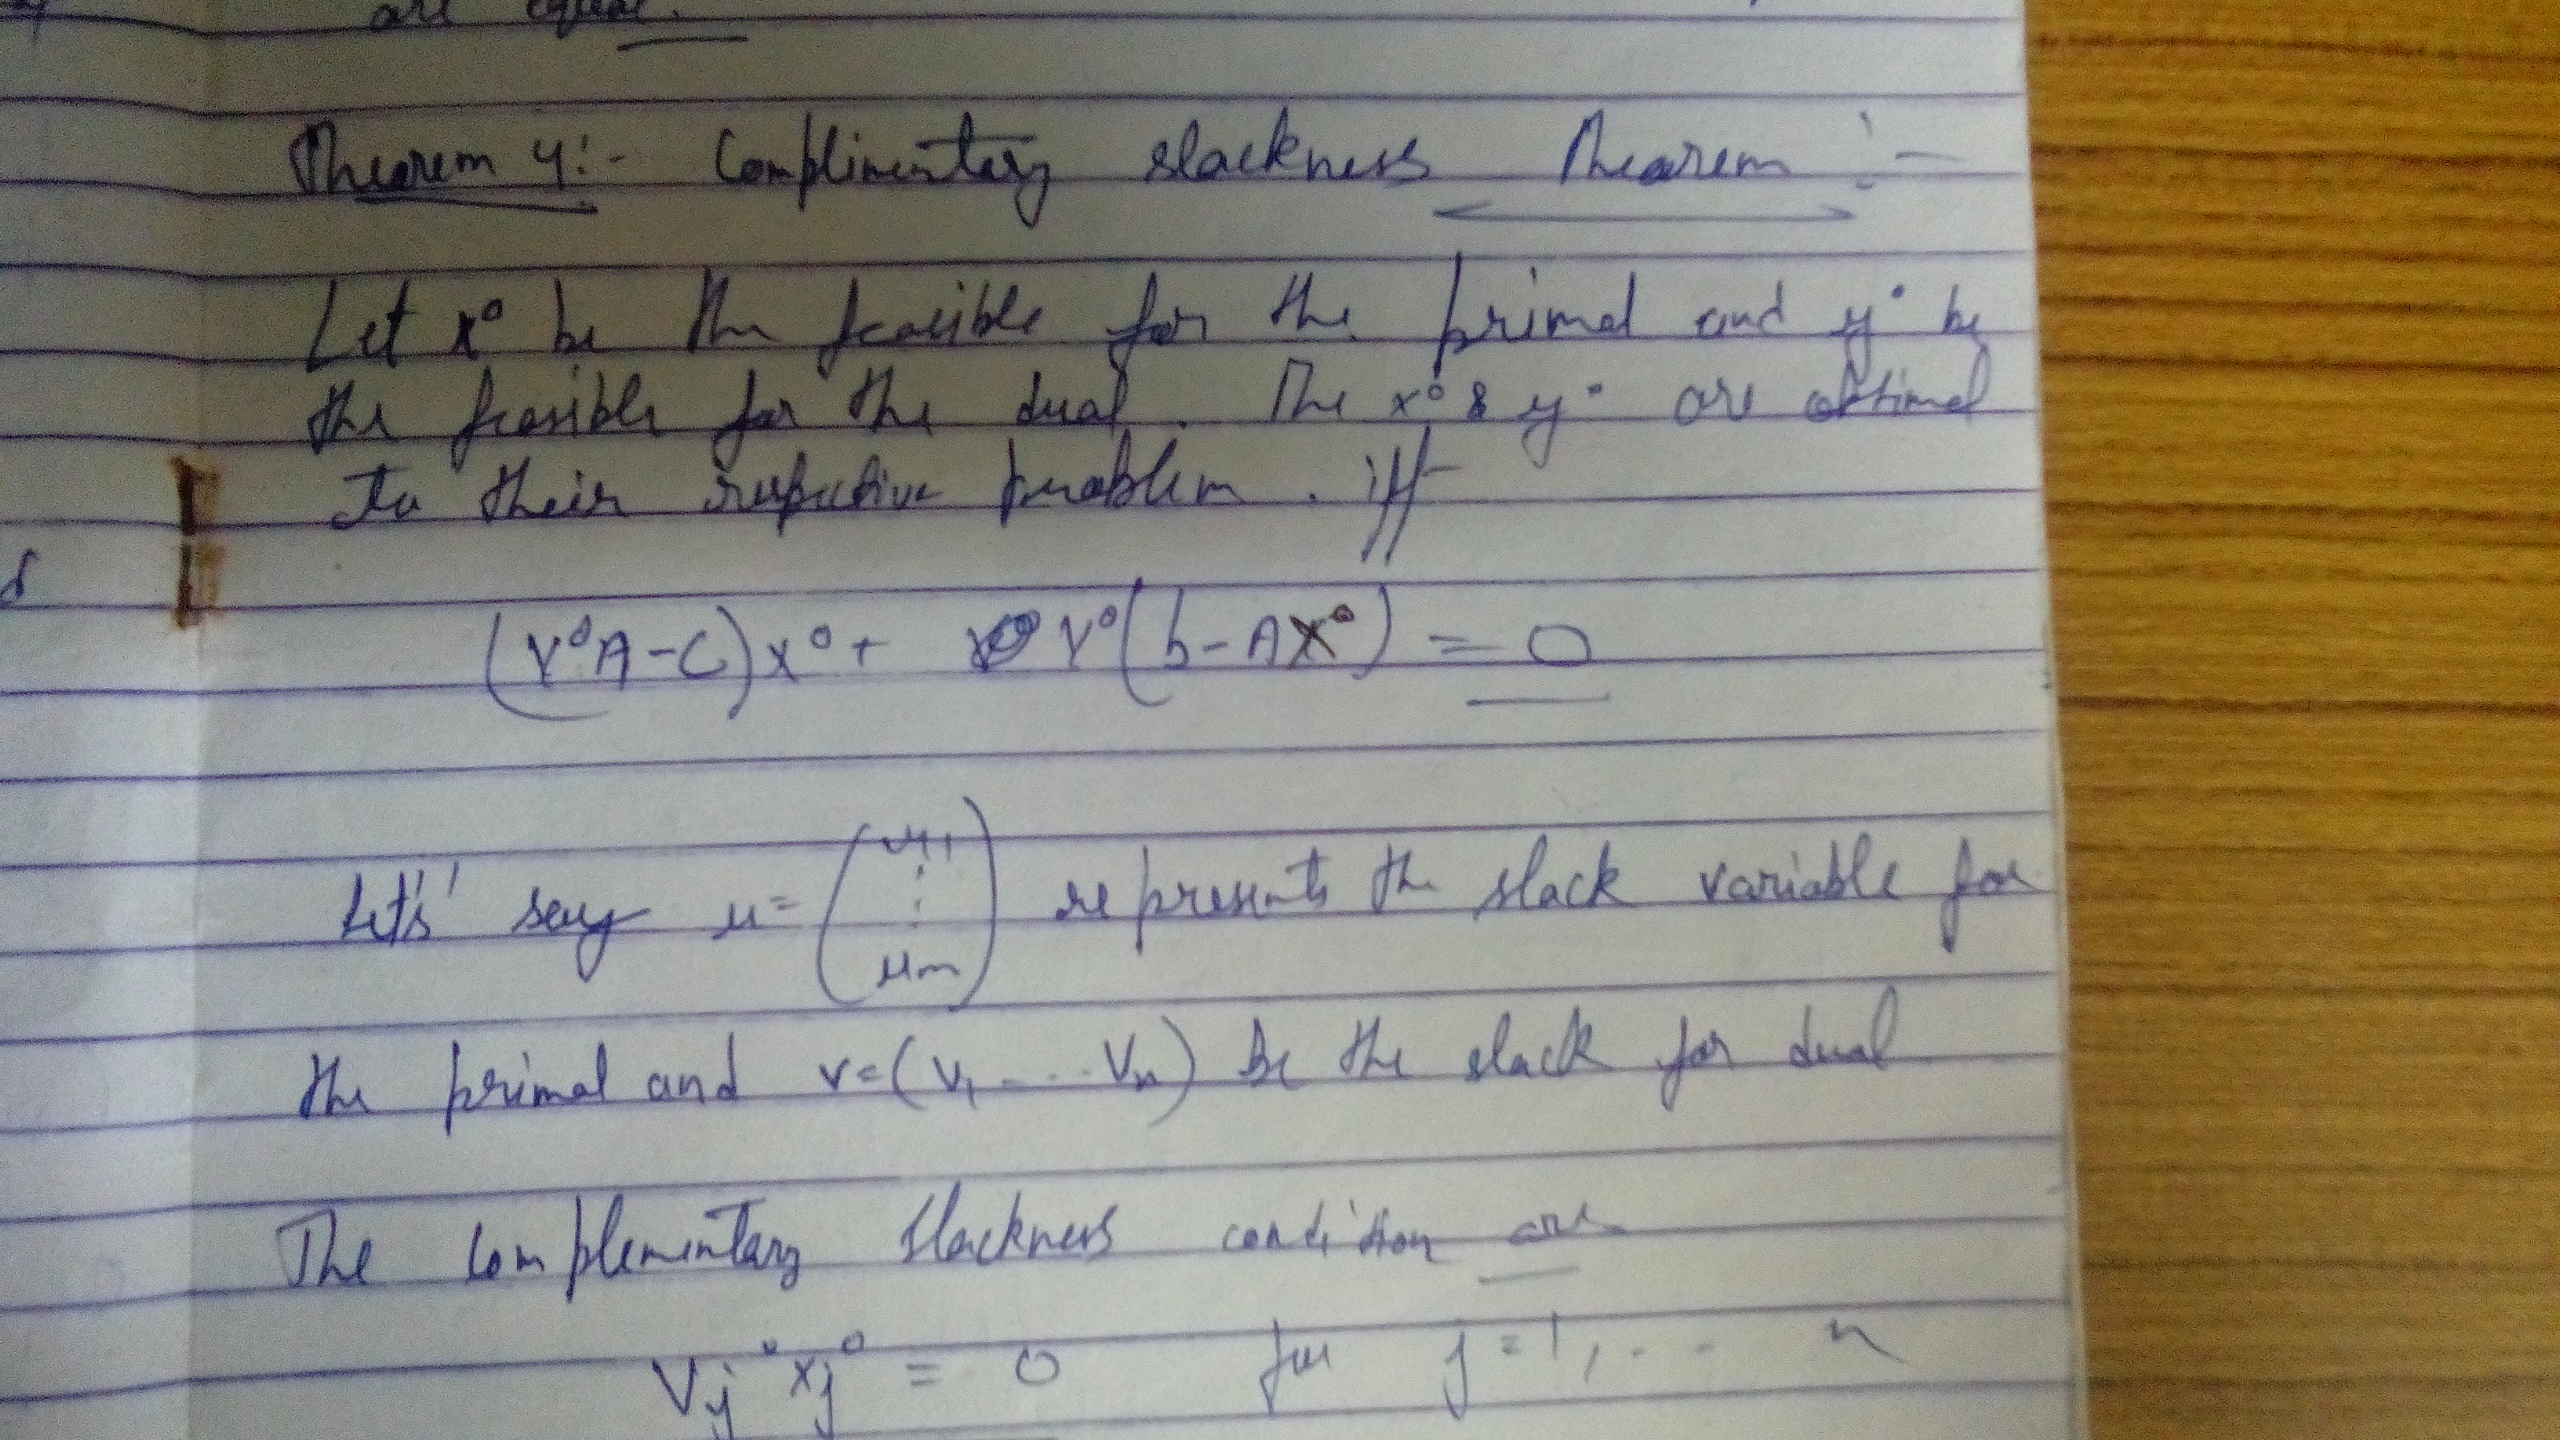 are equal.
Thearem 4:- Complimentary slackness Thearem :-
Let x° be the feasible for the primal and y° be
the feasible for the dual. The x° & y° are optimal
to their respective problem. iff
(Y°A-C)x°+ Y°(b-AX°) = 0
Let's' say u= (u1 : : um) represents the slack variable for
the primal and v=(v1 .... vn) be the slack for dual
The complementary slackness condition are
Vj°xj° = 0 for j=1,... n